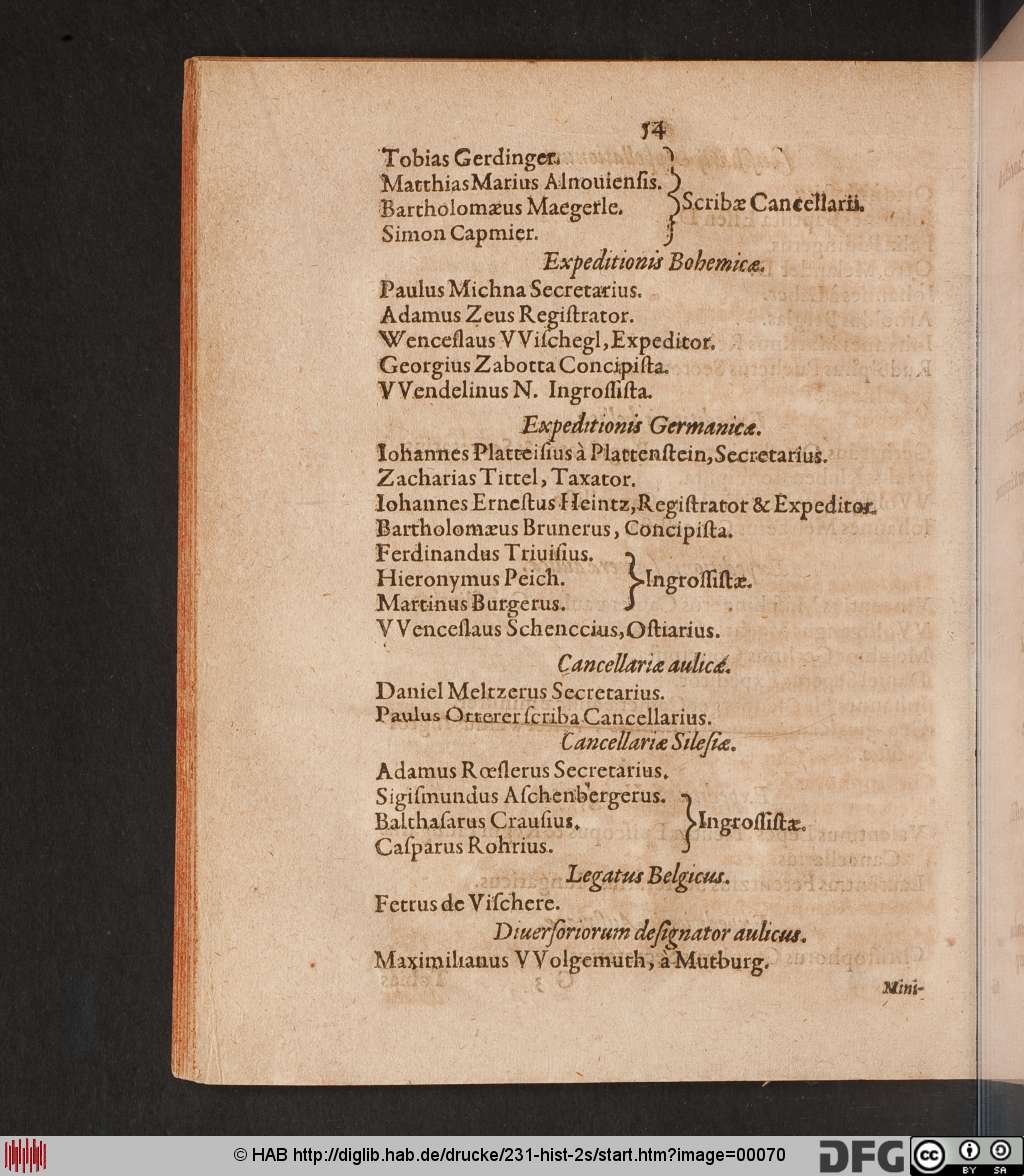 54
Tobias Gerdinger.
Matthias Marius Alnouienſis.
Bartholomæus Maegerle.
Scribæ Cancellarii.
Simon Capmier.
Expeditionis Bohemicæ.
Paulus Michna Secretarius.
Adamus Zeus Regiſtrator.
Wenceſlaus VViſchegl, Expeditor.
Georgius Zabotta Concipiſta.
VVendelinus N. Ingroſſiſta.
Expeditionis Germanicæ.
Iohannes Platteiſius à Plattenſtein, Secretarius.
Zacharias Tittel, Taxator.
Iohannes Erneſtus Heintz, Regiſtrator & Expeditor.
Bartholomæus Brunerus, Concipiſta.
Ferdinandus Triuiſius.
Hieronymus Peich.
Ingroſſiſtæ.
Martinus Burgerus.
VVenceſlaus Schenccius, Oſtiarius.
Cancellariæ aulicæ.
Daniel Meltzerus Secretarius.
Paulus Otterer ſcriba Cancellarius.
Cancellariæ Sileſiæ.
Adamus Rœſlerus Secretarius.
Sigiſmundus Aſchenbergerus.
Balthaſarus Crauſius.
Ingroſſiſtæ.
Caſparus Rohrius.
Legatus Belgicus.
Petrus de Viſchere.
Diuerſoriorum deſignator aulicus.
Maximilianus VVolgemuth, à Mutburg.
Mini-
© HAB http://diglib.hab.de/drucke/231-hist-2s/start.htm?image=00070
DFG
cc
BY SA